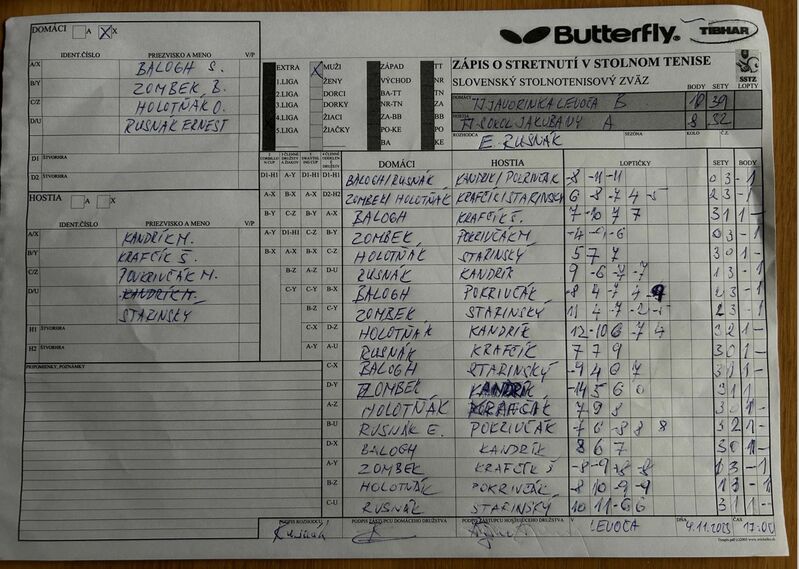 DOMÁCI A X X
IDENT.ČÍSLO PRIEZVISKO A MENO V/P
A/X BALOGH S.
B/Y ZOMBEK B.
C/Z HOLOTŇÁK O.
D/U RUSNÁK ERNEST
D1 ŠTVORHRA
D2
HOSTIA A X
IDENT.ČÍSLO PRIEZVISKO A MENO V/P
A/X KANDRÍK M.
B/Y KRAFČÍK Š.
C/Z POKRIVČÁK M.
D/U KANDRÍK M.
STARINSKÝ
H1 ŠTVORHRA
H2
PRIPOMIENKY, POZNÁMKY
Butterfly TIBHAR
EXTRA X MUŽI ZÁPAD TT
1.LIGA ŽENY VÝCHOD NR
2.LIGA DORCI BA-TT TN
3.LIGA DORKY NR-TN ZA
4.LIGA ŽIACI ZA-BB BB
5.LIGA ŽIAČKY PO-KE PO
BA KE
ZÁPIS O STRETNUTÍ V STOLNOM TENISE
SLOVENSKÝ STOLNOTENISOVÝ ZVÄZ SSTZ
BODY SETY LOPTY
DOMÁCI TJ JAVORINKA LEVOČA B 10 39
HOSTIA TJ SOKOL JAKUBANY A 8 32
ROZHODCA E. RUSNÁK SEZÓNA KOLO Č.Z.
DOMÁCI HOSTIA LOPTIČKY SETY BODY
D1-H1 A-Y D1-H1 D1-H1 BALOGH/RUSNÁK KANDRÍK/POKRIVČÁK -8 -11 -11 0 3 - 1
A-X B-X A-X D2-H2 ZOMBEK/HOLOTŇÁK KRAFČÍK/STARINSKÝ 6 -8 -7 4 -5 2 3 - 1
B-Y C-Z B-Y A-X BALOGH KRAFČÍK Š. 7 -10 7 7 3 1 1 -
A-Y D1-H1 C-Z B-Y ZOMBEK POKRIVČÁK M -4 -6 -6 0 3 - 1
B-X A-X A-Y C-Z HOLOTŇÁK STARINSKÝ 5 7 7 3 0 1 -
B-Z A-Z D-U RUSNÁK KANDRÍK 9 -6 -7 -7 1 3 - 1
C-Y C-Y B-X BALOGH POKRIVČÁK -8 4 -7 4 -9 2 3 - 1
B-Z C-Y ZOMBEK STARINSKÝ 11 4 -7 -2 -5 2 3 - 1
C-X D-Z HOLOTŇÁK KANDRÍK 12 -10 6 -7 4 3 2 1 -
A-Y A-U RUSNÁK KRAFČÍK 7 7 9 3 0 1 -
C-X BALOGH STARINSKÝ -9 4 6 7 3 1 1 -
D-Y ZOMBEK KANDRÍK -14 5 6 6 3 1 1
A-Z HOLOTŇÁK KRAFČÍK 7 9 8 3 0 1 -
B-U RUSNÁK E. POKRIVČÁK -7 6 -8 8 8 3 2 1 -
D-X BALOGH KANDRÍK 8 6 7 3 0 1 -
A-Y ZOMBEK KRAFČÍK Š -8 -9 8 -8 1 3 - 1
B-Z HOLOTŇÁK POKRIVČÁK -8 10 -9 -9 1 3 - 1
C-U RUSNÁK STARINSKÝ 10 11 -6 6 3 1 1 -
PODPIS ROZHODCU PODPIS ZÁSTUPCU DOMÁCEHO DRUŽSTVA PODPIS ZÁSTUPCU HOSŤUJÚCEHO DRUŽSTVA V LEVOČA DŇA 4.11.2023 ČAS 17:00